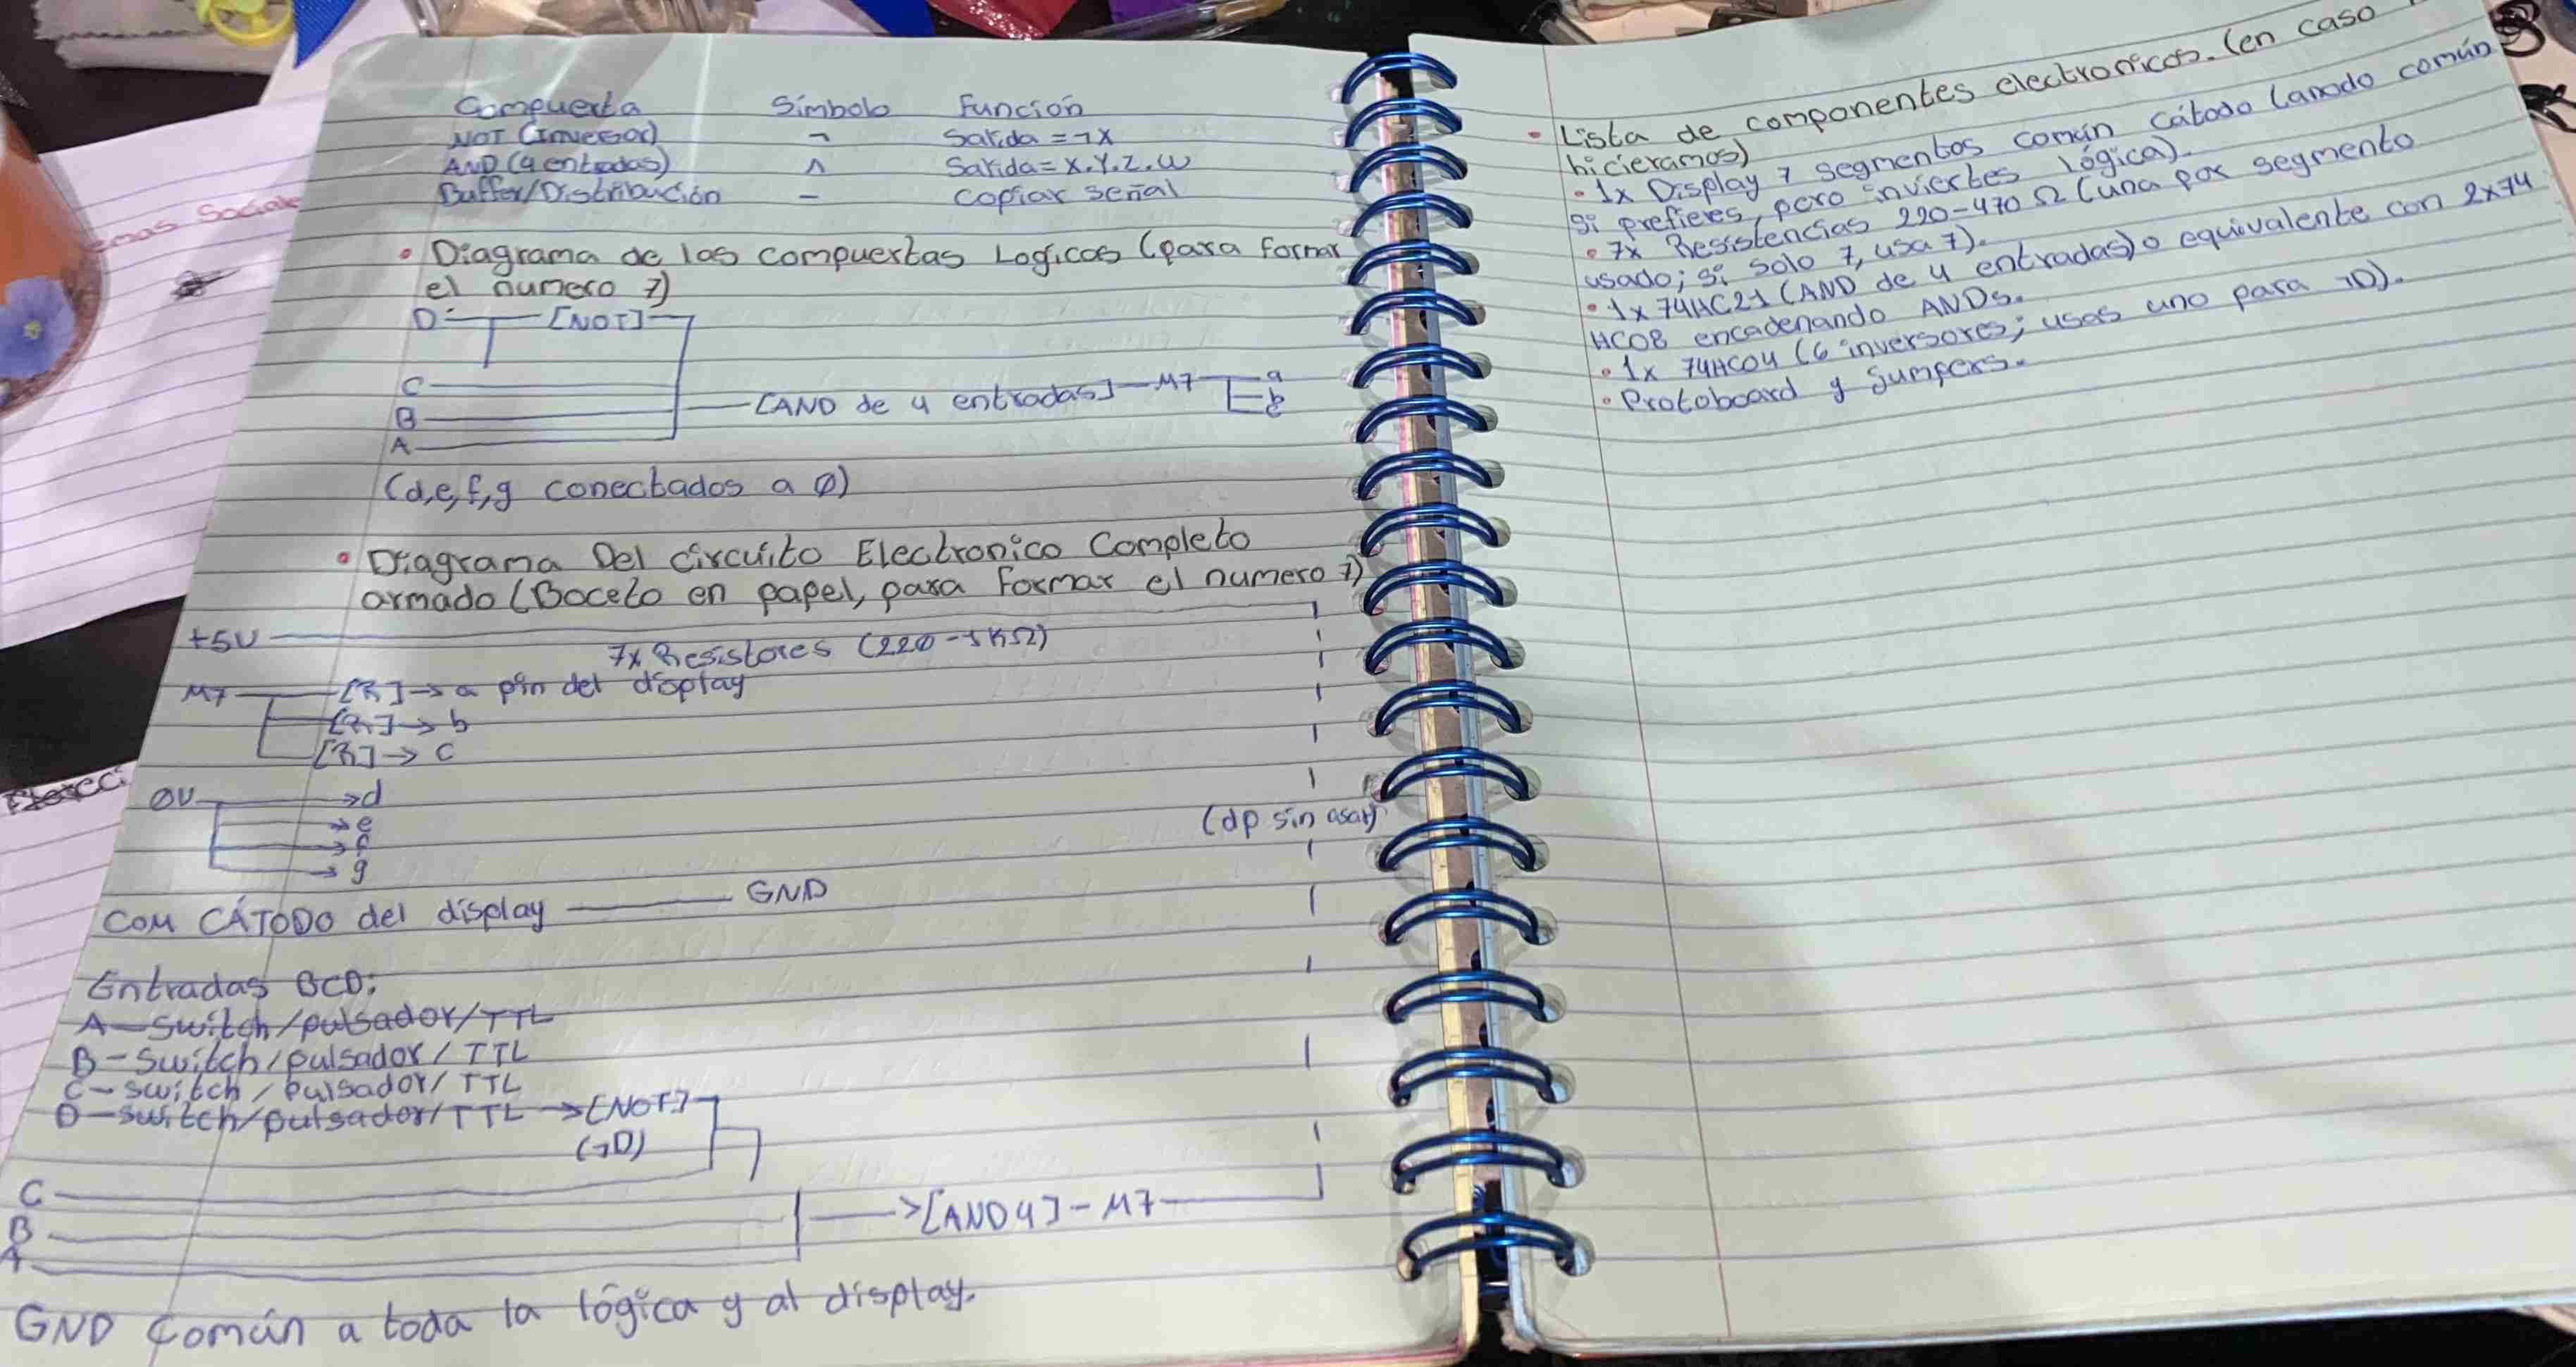 Compuerta Símbolo Función
NOT (Inversor) ¬ Salida = ¬X
AND (4 entradas) ^ Salida = X.Y.Z.W
Buffer/Distribución - copiar señal
• Diagrama de las compuertas Logicas (para formar
el numero 7)
D [NOT]
C
B
A
[AND de 4 entradas] M7 a
b
(d,e,f,g conectados a Ø)
• Diagrama Del circuito Electronico Completo
armado (Boceto en papel, para Formar el numero 7)
+5V
7x Resistores (220-1KΩ)
M7 [R]→ a pin del display
[R]→ b
[R]→ c
ØV →d
→e
→f
→g
(dp sin usar)
COM CÁTODO del display GND
Entradas BCD:
A-switch/pulsador/TTL
B-switch/pulsador/TTL
C-switch/pulsador/TTL
D-switch/pulsador/TTL →[NOT]
(¬D)
C
B
A
→[AND4]-M7
GND común a toda la lógica y al display.
• Lista de componentes electronicos. (en caso
hicieramos)
• 1x Display 7 segmentos común cátodo (anodo común
si prefieres, pero inviertes lógica).
• 7x Resistencias 220-470 Ω (una por segmento
usado; si solo 7, usa 7).
• 1x 74HC21 (AND de 4 entradas) o equivalente con 2x74
HC08 encadenando ANDs.
• 1x 74HC04 (6 inversores; usas uno para ¬D).
• Protoboard y Jumpers.